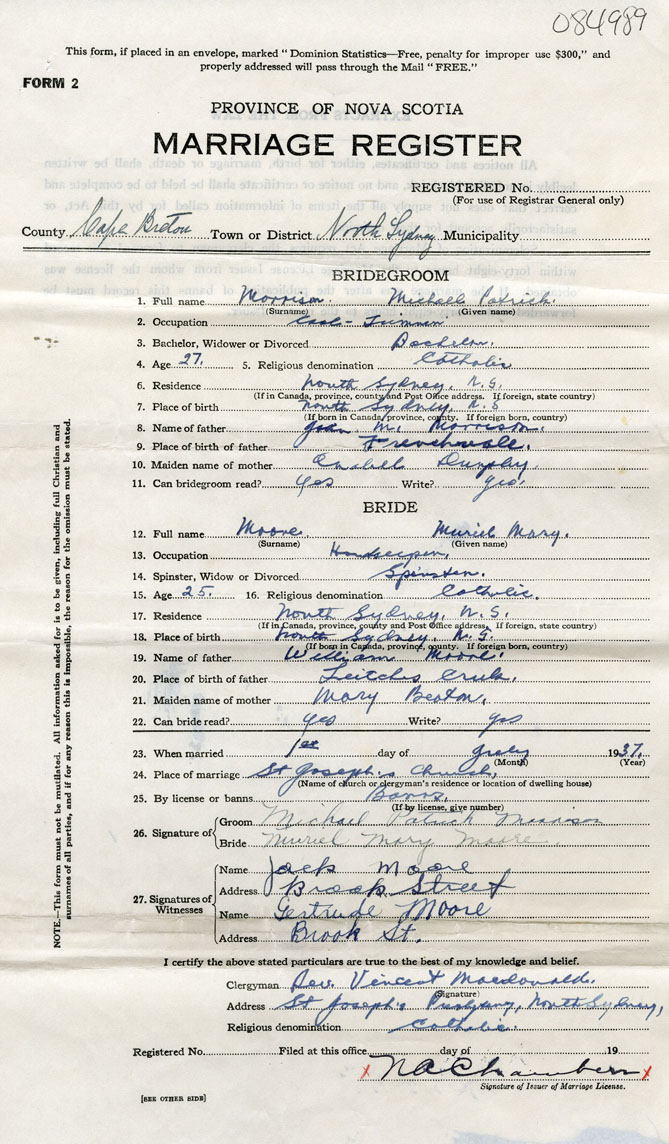 084989
This form, if placed in an envelope, marked "Dominion Statistics—Free, penalty for improper use $300," and
properly addressed will pass through the Mail "FREE."
FORM 2
PROVINCE OF NOVA SCOTIA
MARRIAGE REGISTER
REGISTERED No.
(For use of Registrar General only)
County Cape Breton Town or District North Sydney Municipality
BRIDEGROOM
1. Full name Morrison Michael Patrick
(Surname) (Given name)
2. Occupation Coal-Trimmer
3. Bachelor, Widower or Divorced Bachelor.
4. Age 27. 5. Religious denomination Catholic
6. Residence North Sydney, N.S.
(If in Canada, province, county and Post Office address. If foreign, state country)
7. Place of birth North Sydney, N.S
(If born in Canada, province, county. If foreign born, country)
8. Name of father John M. Morrison.
9. Place of birth of father Frenchvale.
10. Maiden name of mother Dunphy.
11. Can bridegroom read? Yes Write? Yes
BRIDE
12. Full name Moore. Muriel Mary.
(Surname) (Given name)
13. Occupation Housekeeper,
14. Spinster, Widow or Divorced Spinster.
15. Age 25. 16. Religious denomination Catholic.
17. Residence North Sydney, N.S.
(If in Canada, province, county and Post Office address. If foreign, state country)
18. Place of birth North Sydney, N.S.
(If born in Canada, province, county. If foreign born, country)
19. Name of father William Moore.
20. Place of birth of father Leitches Creek.
21. Maiden name of mother Mary Beaton,
22. Can bride read? yes Write? yes
23. When married 1st day of July 1937.
(Month) (Year)
24. Place of marriage St Joseph's Church,
(Name of church or clergyman's residence or location of dwelling house)
25. By license or banns Banns,
(If by license, give number)
26. Signature of
Groom Michael Patrick Morrison
Bride Muriel Mary Moore
27. Signatures of Witnesses
Name Jack Moore
Address Brook Street
Name Gertrude Moore
Address Brook St.
I certify the above stated particulars are true to the best of my knowledge and belief.
Clergyman Rev. Vincent Macdonald.
(Signature)
Address St Joseph's North Sydney,
Religious denomination Catholic.
Registered No. Filed at this office day of 19
x N A Chambers x
Signature of Issuer of Marriage License.
[SEE OTHER SIDE]
NOTE.—This form must not be mutilated. All information asked for is to be given, including full Christian and
surnames of all parties, and if for any reason this is impossible, the reason for the omission must be stated.